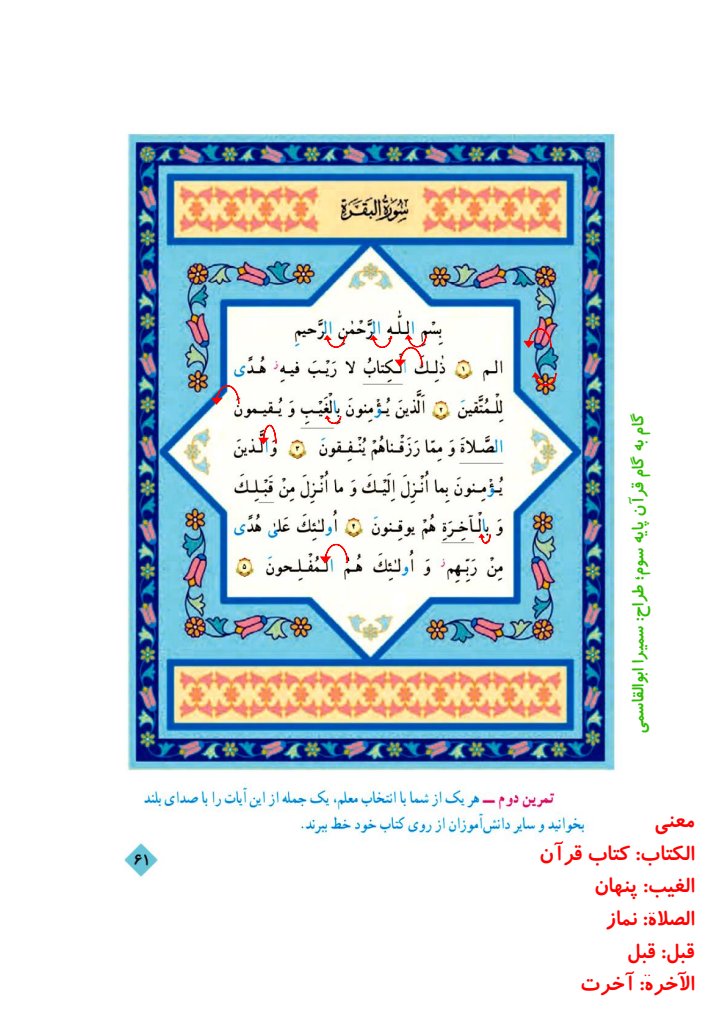 سُورَةُ الْبَقَرَةِ
بِسْمِ اللّٰهِ الرَّحْمٰنِ الرَّحیمِ
الم ۱ ذٰلِكَ الْكِتابُ لا رَیْبَ فیهِ هُدًى
لِلْمُتَّقینَ ۲ اَلَّذینَ یُؤْمِنونَ بِالْغَیْبِ وَ یُقیمونَ
الصَّلاةَ وَ مِمّا رَزَقْناهُمْ یُنْفِقونَ ۳ وَالَّذینَ
یُؤْمِنونَ بِما اُنْزِلَ اِلَیْكَ وَ ما اُنْزِلَ مِنْ قَبْلِكَ
وَ بِالْآخِرَةِ هُمْ یوقِنونَ ۴ اُولٰئِكَ عَلىٰ هُدًى
مِنْ رَبِّهِم وَ اُولٰئِكَ هُمُ الْمُفْلِحونَ ۵
گام به گام قرآن پایه سوم؛ طراح: سمیرا ابوالقاسمی
تمرین دوم ــ هر یک از شما با انتخاب معلم، یک جمله از این آیات را با صدای بلند
بخوانید و سایر دانش‌آموزان از روی کتاب خود خط ببرند.
۶۱
معنی
الکتاب: کتاب قرآن
الغیب: پنهان
الصلاة: نماز
قبل: قبل
الآخرة: آخرت